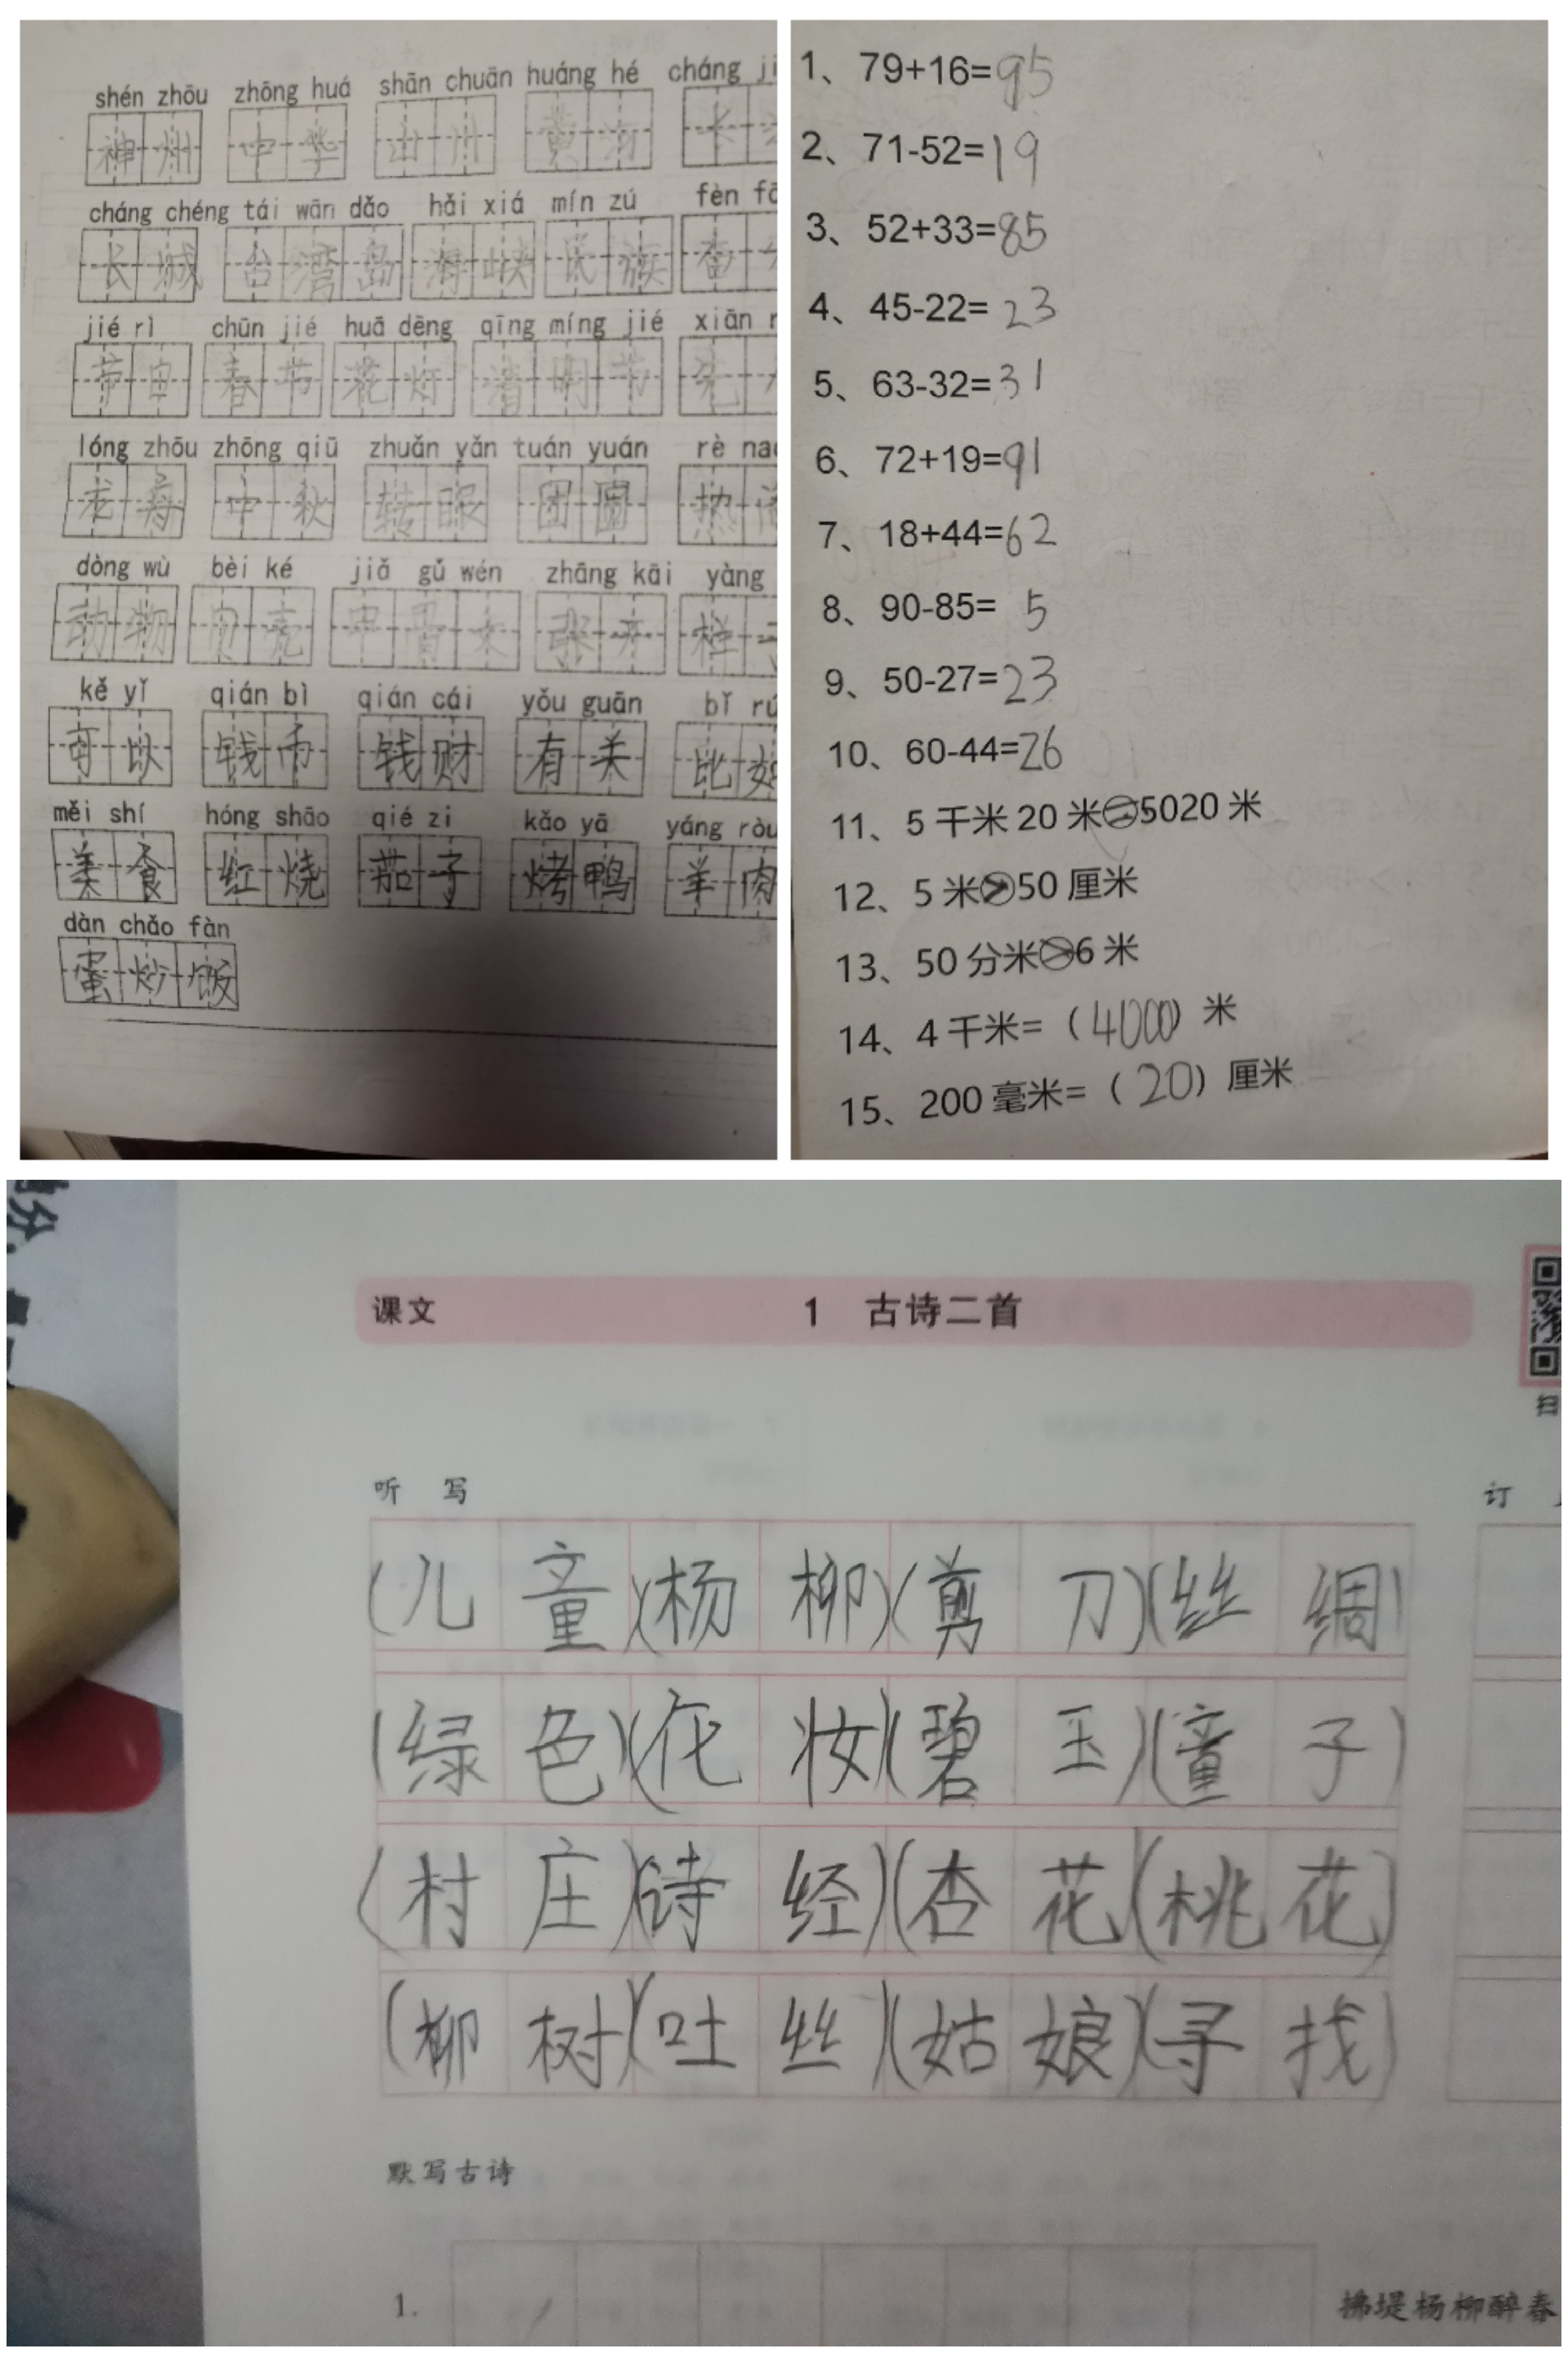 shén zhōu zhōng huá shān chuān huáng hé cháng ji
神州 中华 山川 黄河 长
cháng chéng tái wān dǎo hǎi xiá mín zú fèn fā
长城 台湾岛 海峡 民族 奋
jié rì chūn jié huā dēng qīng míng jié xiān r
节日 春节 花灯 清明节 先
lóng zhōu zhōng qiū zhuǎn yǎn tuán yuán rè nao
龙舟 中秋 转眼 团圆 热
dòng wù bèi ké jiǎ gǔ wén zhāng kāi yàng
动物 贝壳 甲骨文 张开 样
kě yǐ qián bì qián cái yǒu guān bǐ rú
可以 钱币 钱财 有关 比如
měi shí hóng shāo qié zi kǎo yā yáng ròu
美食 红烧 茄子 烤鸭 羊肉
dàn chǎo fàn
蛋炒饭
1、79+16=95
2、71-52=19
3、52+33=85
4、45-22=23
5、63-32=31
6、72+19=91
7、18+44=62
8、90-85=5
9、50-27=23
10、60-44=26
11、5千米20米=5020米
12、5米>50厘米
13、50分米>6米
14、4千米=（4000）米
15、200毫米=（20）厘米
课文 1 古诗二首
扫
听 写 订
(儿童)(杨柳)(剪刀)(丝绸)
(绿色)(花妆)(碧玉)(童子)
(村庄)(诗经)(杏花)(桃花)
(柳树)(吐丝)(姑娘)(寻找)
默写古诗
1. 拂堤杨柳醉春